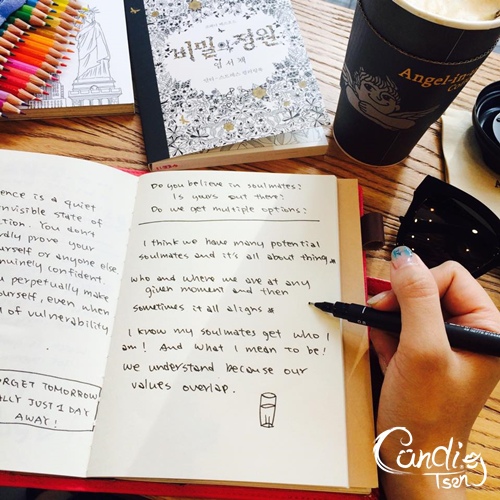 비밀의 정원
엽서책
Angel-in
ence is a quiet
invisible state of
ction. You don't
rdly prove your
urself or anyone else
nuinely confident.
u perpetually make
ourself, even when
of vulnerability
RGET TOMORROW
LLY JUST 1 DAY
AWAY!
Do you believe in soulmates?
Is yours out there?
Do we get multiple options?
I think we have many potential
soulmates and it's all about timing,
who and where we are at any
given moment and then
sometimes it all aligns
I know my soulmates get who I
am! And what I mean to be!
we understand because our
values overlap.
Candies
Tsen